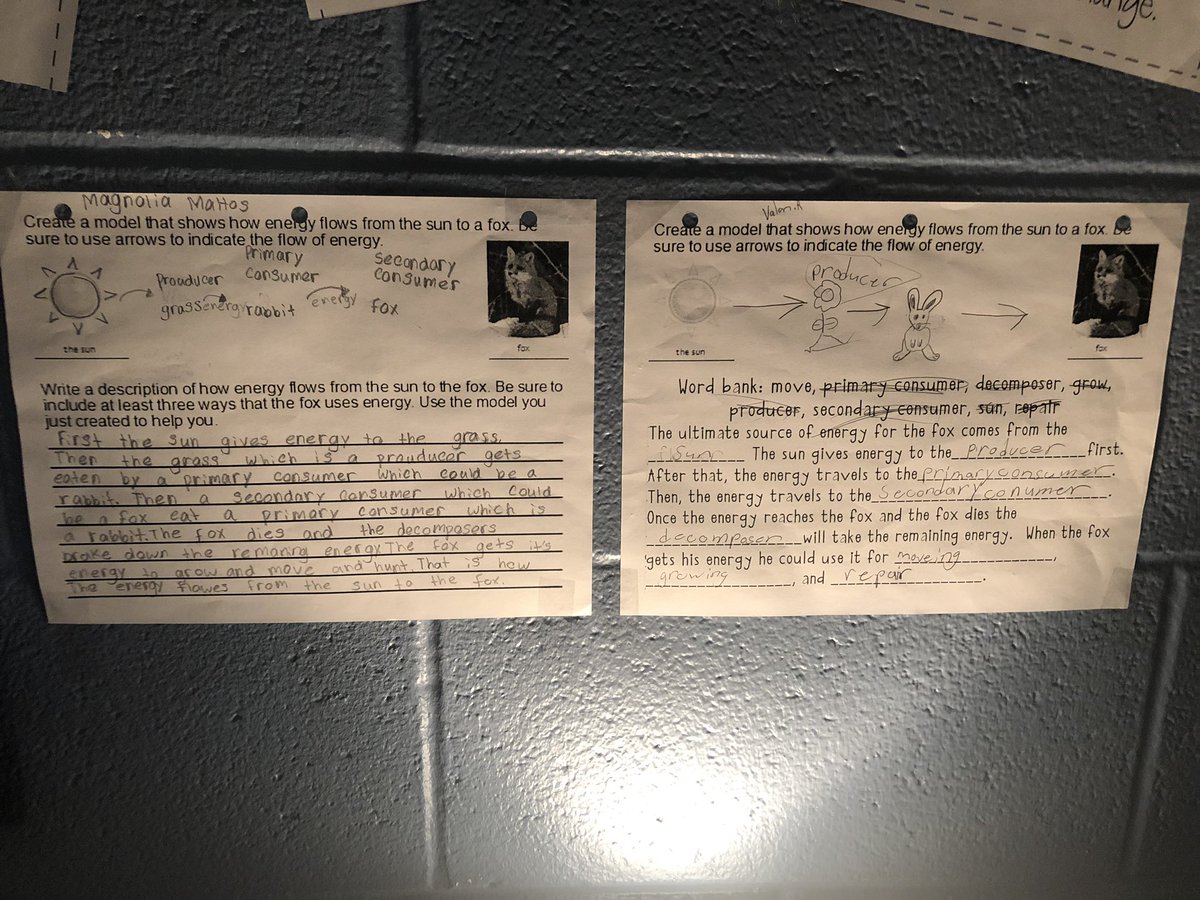 ange.
Magnolia Mattos
Create a model that shows how energy flows from the sun to a fox. Be
sure to use arrows to indicate the flow of energy.
Primary
Secondary
Prouducer
Consumer
Consumer
grass
energy
rabbit
energy
fox
the sun
fox
Write a description of how energy flows from the sun to the fox. Be sure to
include at least three ways that the fox uses energy. Use the model you
just created to help you.
First the sun gives energy to the grass.
Then the grass which is a prouducer gets
eaten by a primary consumer which could be a
rabbit. Then a secondary consumer which could
be a fox eat a primary consumer which is
a rabbit. The fox dies and the decomposers
brake down the remaning energy The fox gets it's
energy to grow and move and hunt. That is how
The energy flowes from the sun to the fox.
Valen.A
Create a model that shows how energy flows from the sun to a fox. Be
sure to use arrows to indicate the flow of energy.
producer
the sun
fox
Word bank: move, primary consumer, decomposer, grow,
producer, secondary consumer, sun, repair
The ultimate source of energy for the fox comes from the
Sun The sun gives energy to the Producer first.
After that, the energy travels to the primary consumer.
Then, the energy travels to the Secondary conumer.
Once the energy reaches the fox and the fox dies the
decomposer will take the remaining energy. When the fox
gets his energy he could use it for moveing,
growing, and repair.